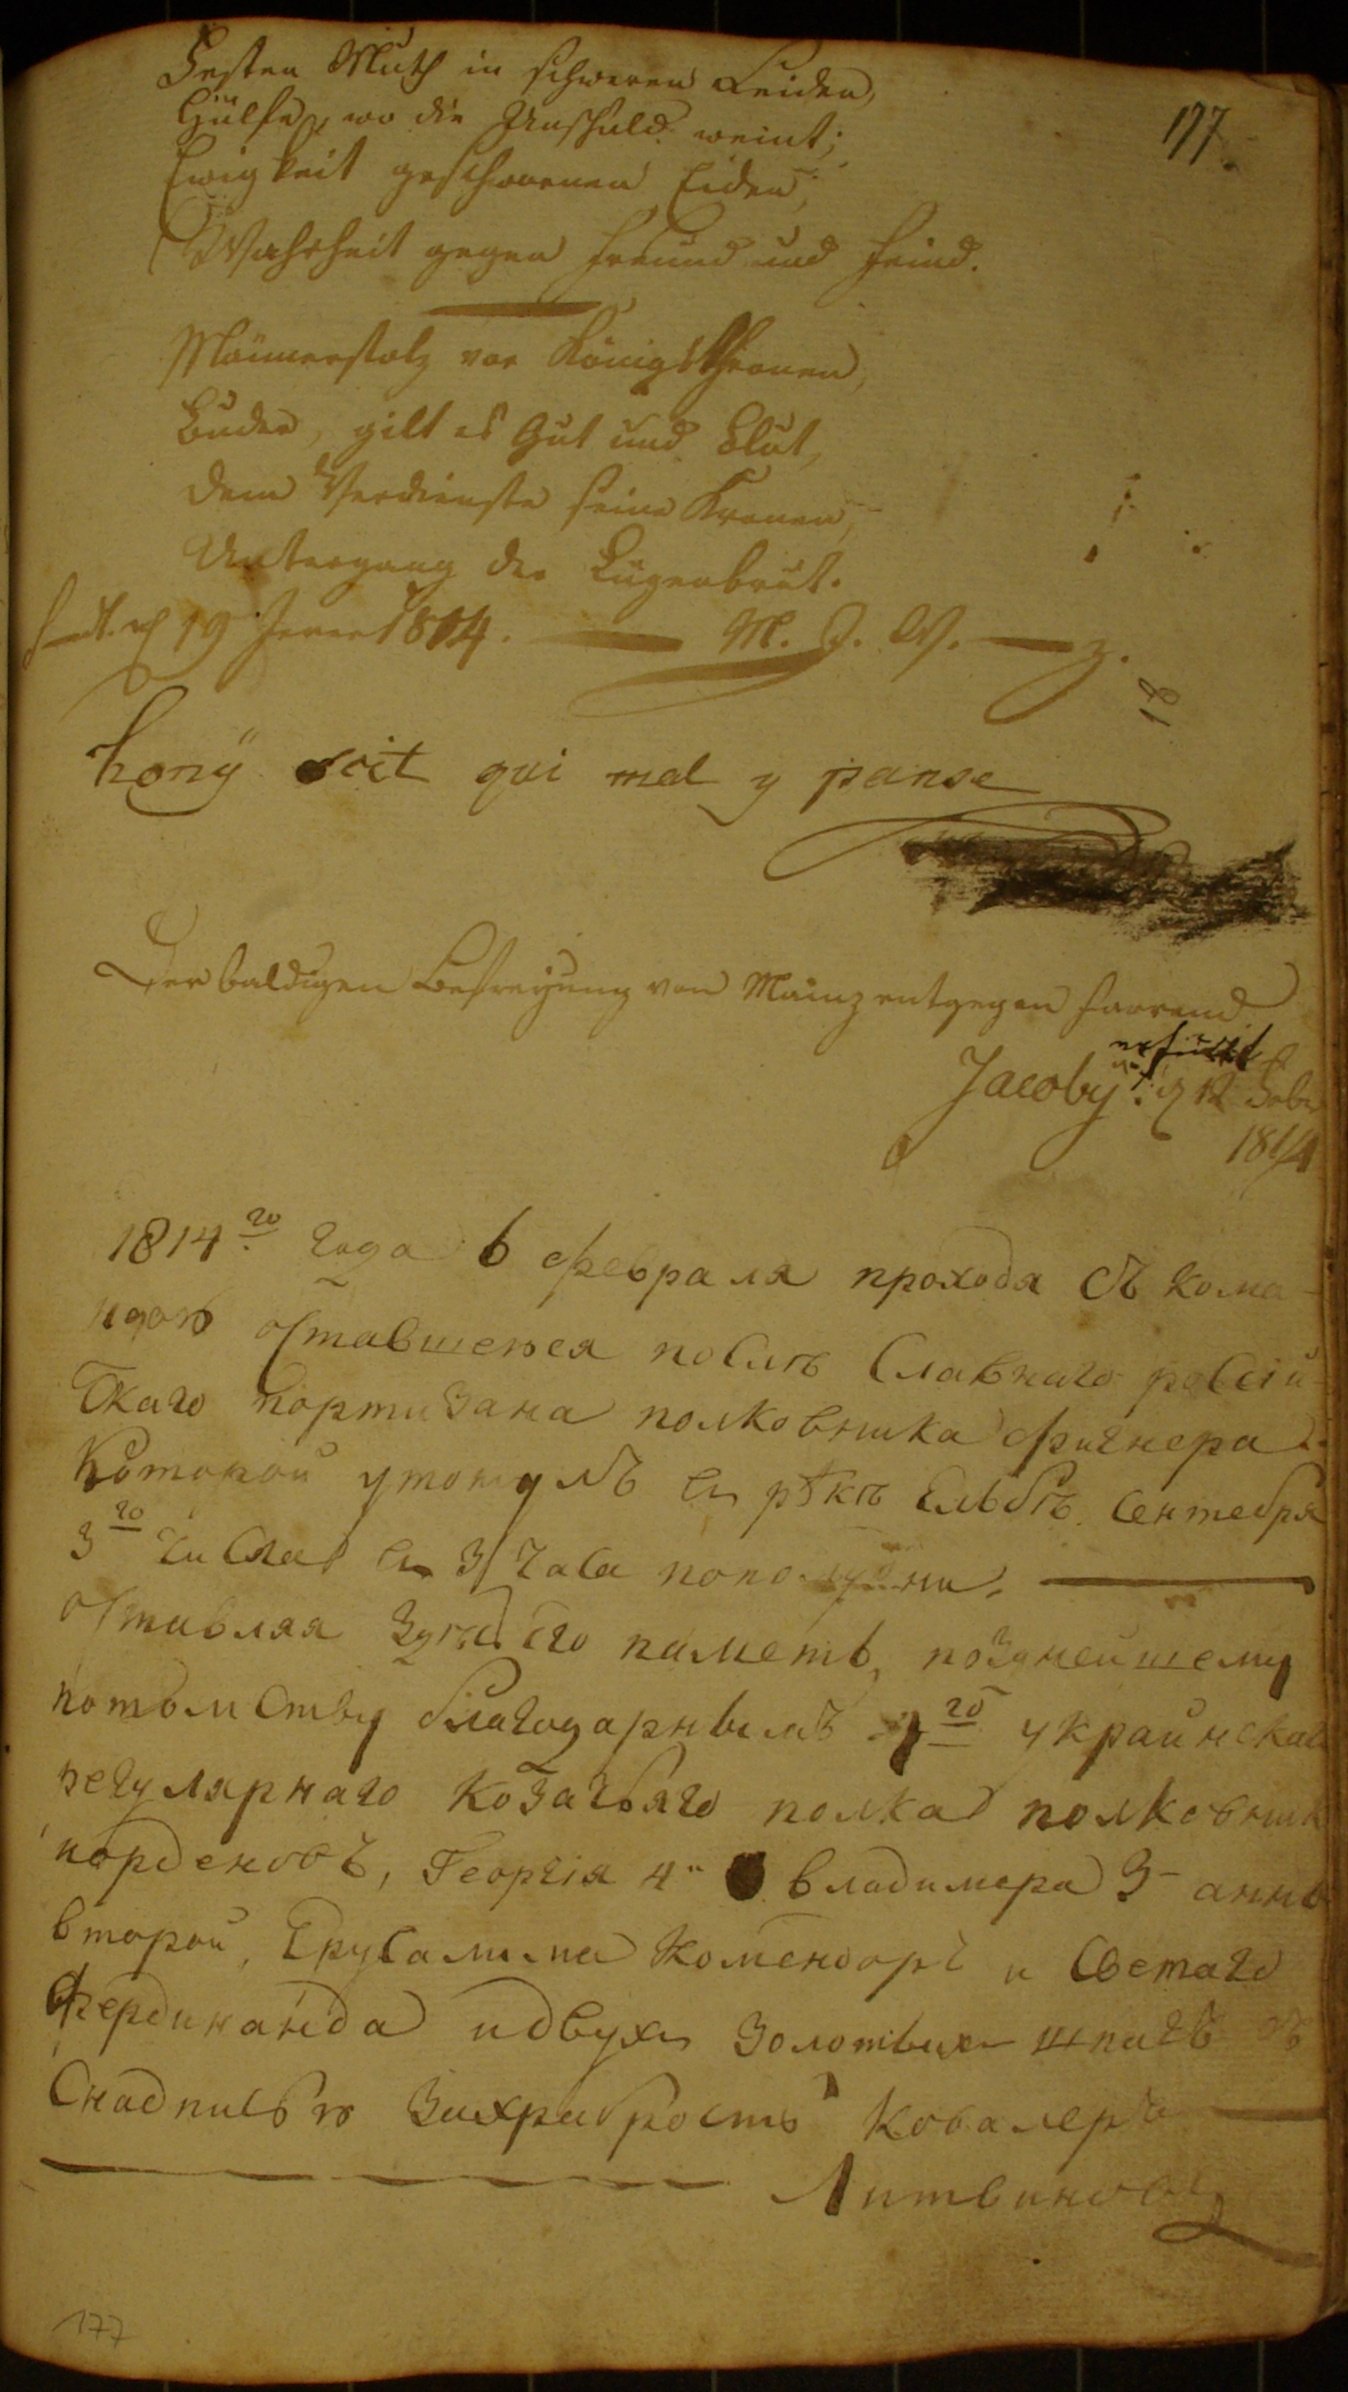 177.
Festen Muth in schweren Leiden,
Hülfe, wo die Unschuld weint;
Ewigkeit geschwornen Eiden,
Wahrheit gegen Freund und Feind.
Männerstolz vor Königsthronen,
Bruder, gilt es Gut und Blut,
dem Verdienste seine Kronen,
Untergang der Lügenbrut.
19 Jener 1814. — M. J. W. — z.
18
hony soit qui mal y panse
Der baldigen Befreyung von Mainz entgegen harrend
erfüllt
Jacoby 12 Febr
1814
1814го года 6 февраля проходя съ кома-
ндою оставшеюся после славнаго россiй-
скаго портизана полковника фигнера
Которой утонулъ въ рѣкѣ Ельбѣ. Сентебря
3го числа въ 3 часа пополудни, —
оставляя здѣсь его паметь, позднейшему
потомству благодарнымъ го украинскаго
регулярнаго Козачьяго полка полковник
иорденовъ, Георгiя 4 владимера 3 анны
второй, Ерусалима Комендоръ и Светаго
Фердинанда идвухъ золотыхъ шпагъ
Снадписью Захрабрость Ковалеръ —
Литвиновъ
177